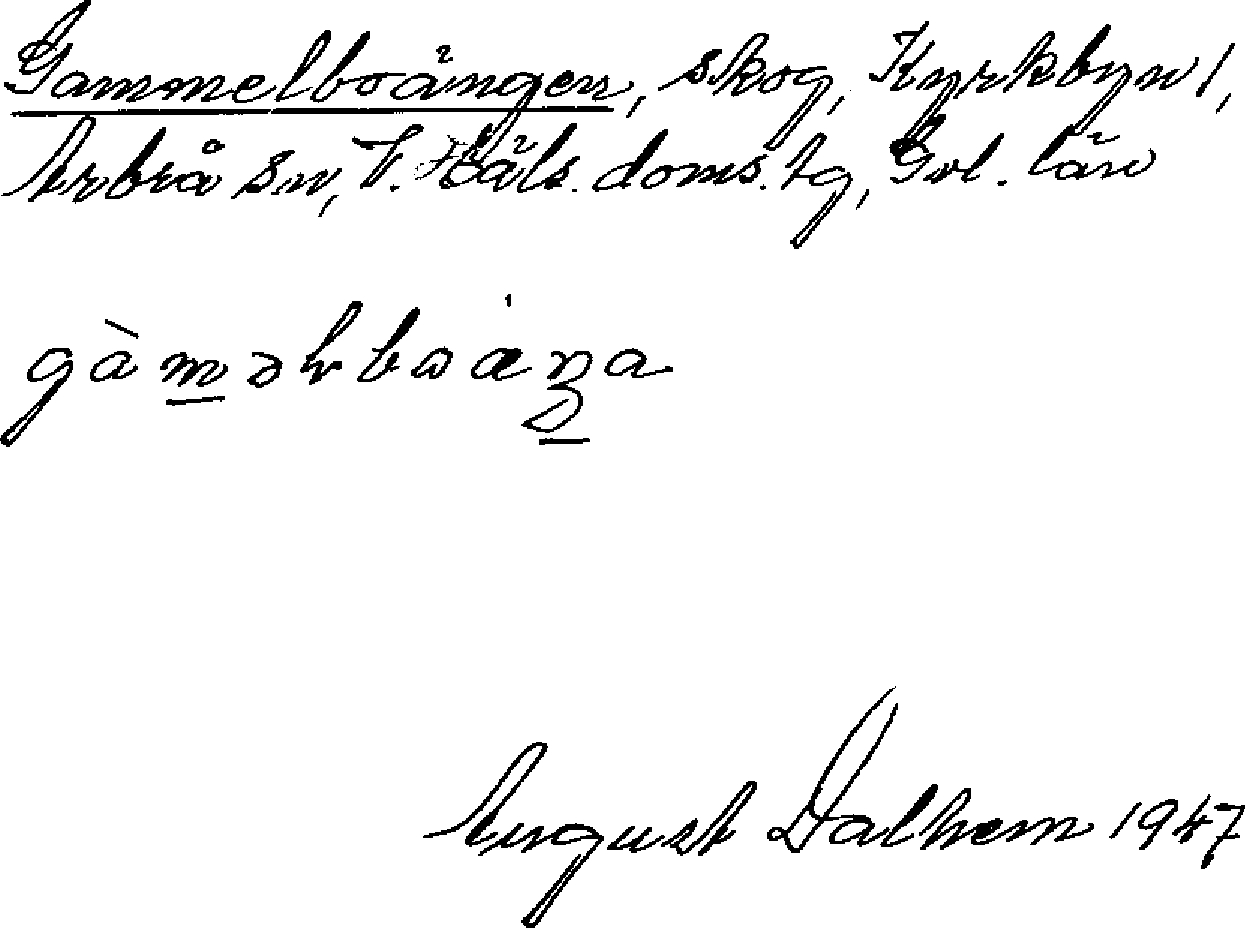 Gammelboängen, skog, Kyrkbyn 1,
Arbrå sn, V. Häls. doms. tg, Gvl. län
August Dalhem 1947